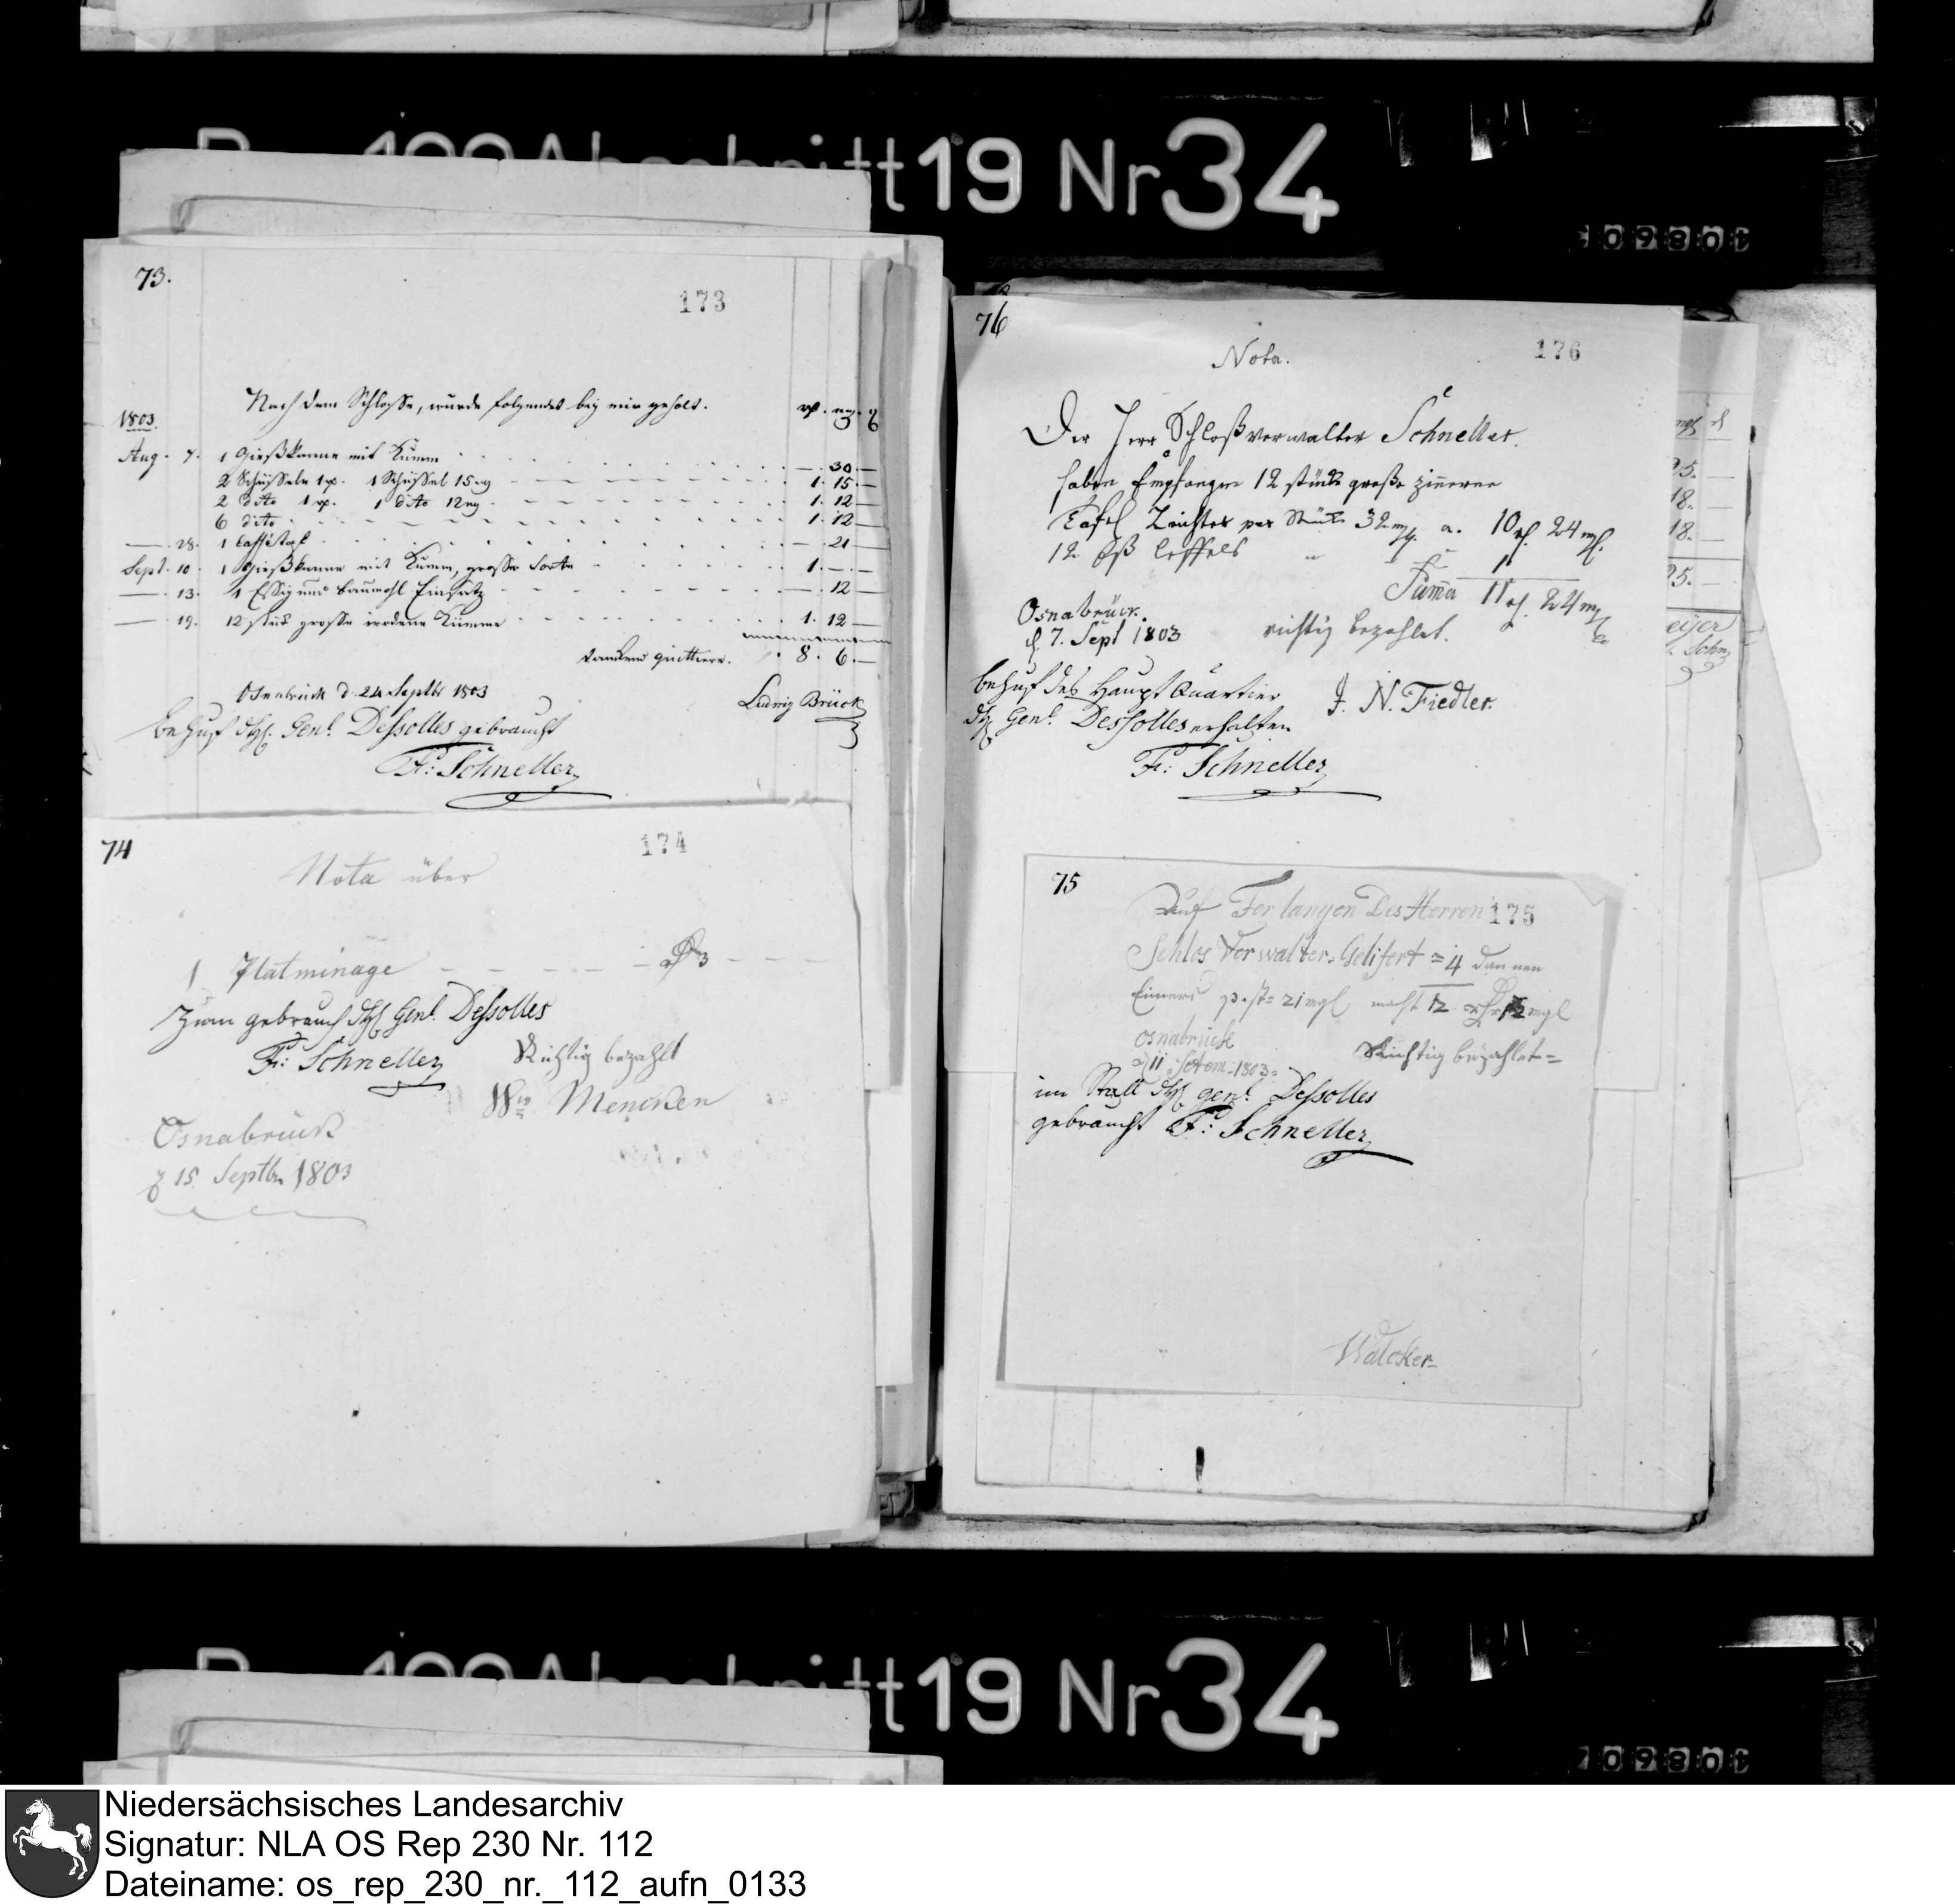 19 Nr 34
73.
173
Nach dem Schlosse, wurde folgendes bey mir geholt.
1803.
Aug. 7. 1 Gießkanne mit Kumm — 30 —
2 Schüsseln 1 1 Schüssel 15 mg 1. 15 —
2 dito 1 1 dito 12 mg 1. 12 —
6 dito 1. 12 —
— 28. 1 Caffetopf — 21 —
Sept. 10. 1 Gießkanne mit Kumm, grosse Sorte 1. — . —
— 13. 1 Essig und Baumohl Einsatz — 12 —
— 19. 12 stück grosse irrdene Kümme 1. 12 —
dankend quittiere. 8. 6. —
Osnabrück d. 24 Septbr 1803
Ludwig Brück
Behuf des Genl. Dessolles gebraucht
Fr: Schneller
74
174
Nota über
1 Platminage 3
Zum gebrauch des Genl. Dessolles
Fr: Schneller
Richtig bezahlt
Mencken
Osnabrück
15 Septbr 1803
76
176
Nota.
Der Herr Schloßverwalter Schneller.
haben Empfangen 12 stück große zinnerne
Tafel Leuchter per Stück 32 mg. a. 10 24 mg.
12 Eß leffels „ 1
Summa 11 24 mg
Osnabrück.
d 7. Sept 1803
richtig bezahlet.
behuf des Haupt Quartier
J. N. Fiedler.
des Genl. Dessolles erhalten
Fr: Schneller
75
175
Auf Ferlangen Des Herren
Schlos Verwalter. Gelifert = 4 dannen
Eimers p. st = 21 mgl macht 12 mgl
osnabrück
11 1803 =
Richtig bezahlet =
im Stall des genl. Dessolles
gebraucht Fr: Schneller
Walcker
19 Nr 34
Niedersächsisches Landesarchiv
Signatur: NLA OS Rep 230 Nr. 112
Dateiname: os_rep_230_nr._112_aufn_0133